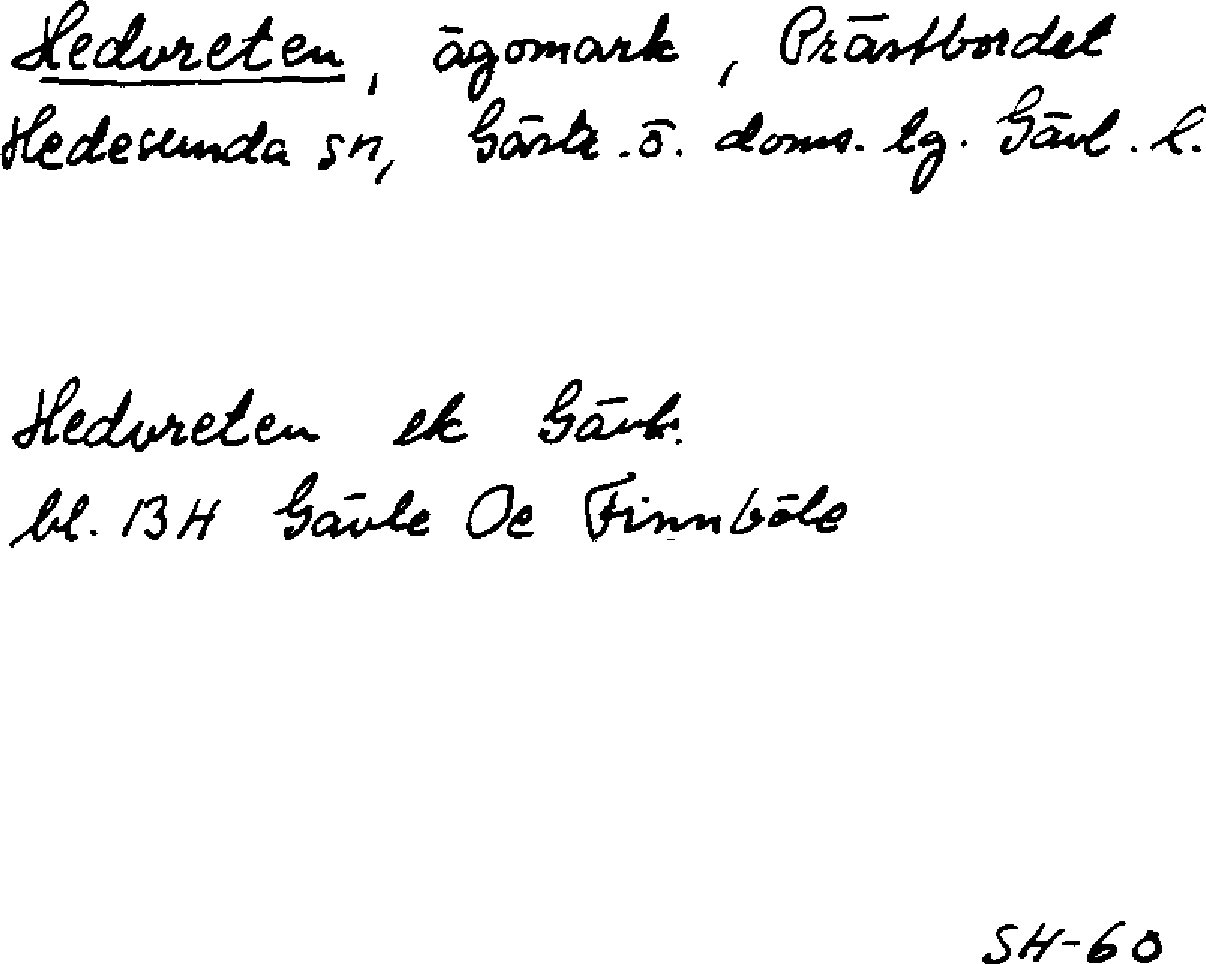 Hedvreten, ägomark, Prästbordet
Hedesunda sn, Gästr. ö. doms. lg. Gävl. l.
Hedvreten ek Gävb.
bl. 13H Gävle Oe Finnböle
SH-60